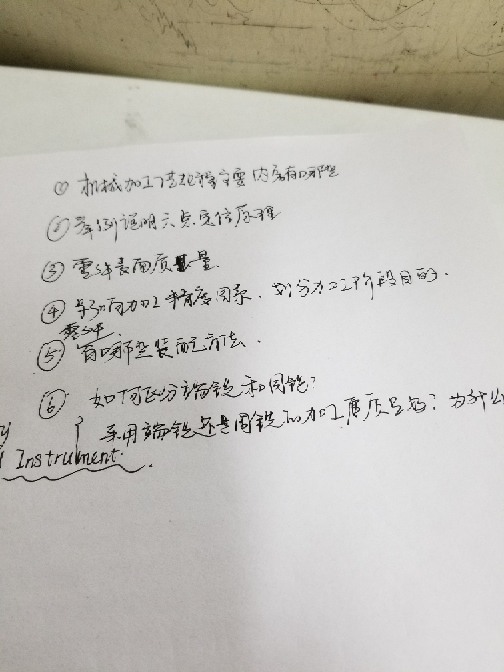 ① 机械加工工艺规程主要内容有哪些
② 举例说明六点定位原理
③ 零件表面质量
④ 影响加工精度因素、划分加工阶段目的.
零件
⑤ 有哪些装配方法.
⑥ 如何区分端铣和周铣?
采用端铣还是周铣的加工质量好? 为什么
Instrument.